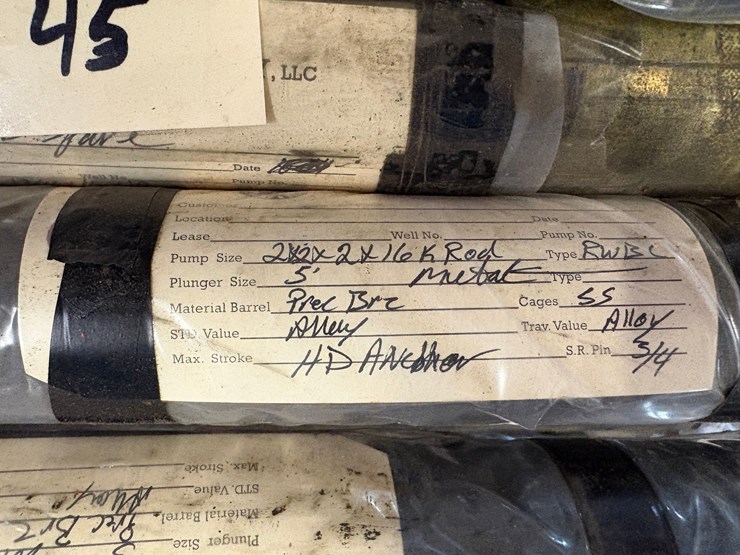 45
, LLC
Spare
Date
Well No.
Pump No.
Customer
Location Date
Lease Well No. Pump No.
Pump Size 2x2x2x16 K Rod Type RWBC
Plunger Size 5' Metal Type
Material Barrel Prec Brz Cages SS
STD. Value Alloy Trav. Value Alloy
Max. Stroke HD Anchor S.R. Pin 3/4
Max. Stroke
STD. Value Alloy
Material Barrel Prec Brz
Plunger Size